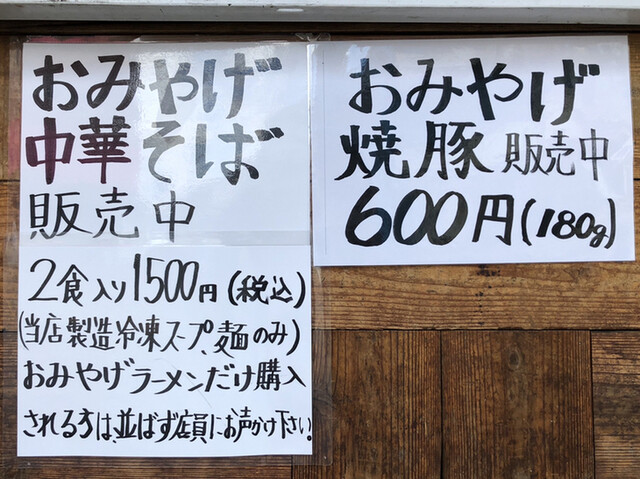 おみやげ
中華そば
販売中
2食入り1500円(税込)
(当店製造冷凍スープ、麺のみ)
おみやげラーメンだけ購入
される方は、並ばず店員にお声がけ下さい!
おみやげ
焼豚販売中
600円(180g)